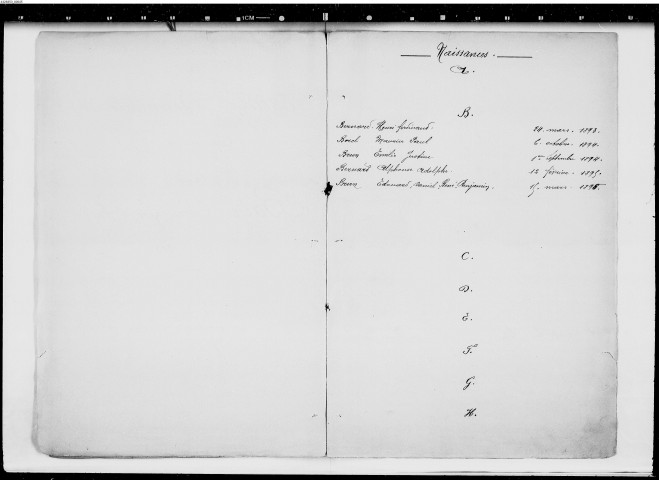 Naissances.
A.
B.
Bernard Henri ferdinand. 24 mars. 1893.
Bosch Maurice Paul 6 octobre. 1894.
Brun Emilie Justine 1er septembre 1894.
Bernard Alphonse Adolphe 12 février. 1895.
Brun Edouard, Daniel, René, Benjamin. 15 mars 1895.
C.
D.
E.
F.
G.
H.